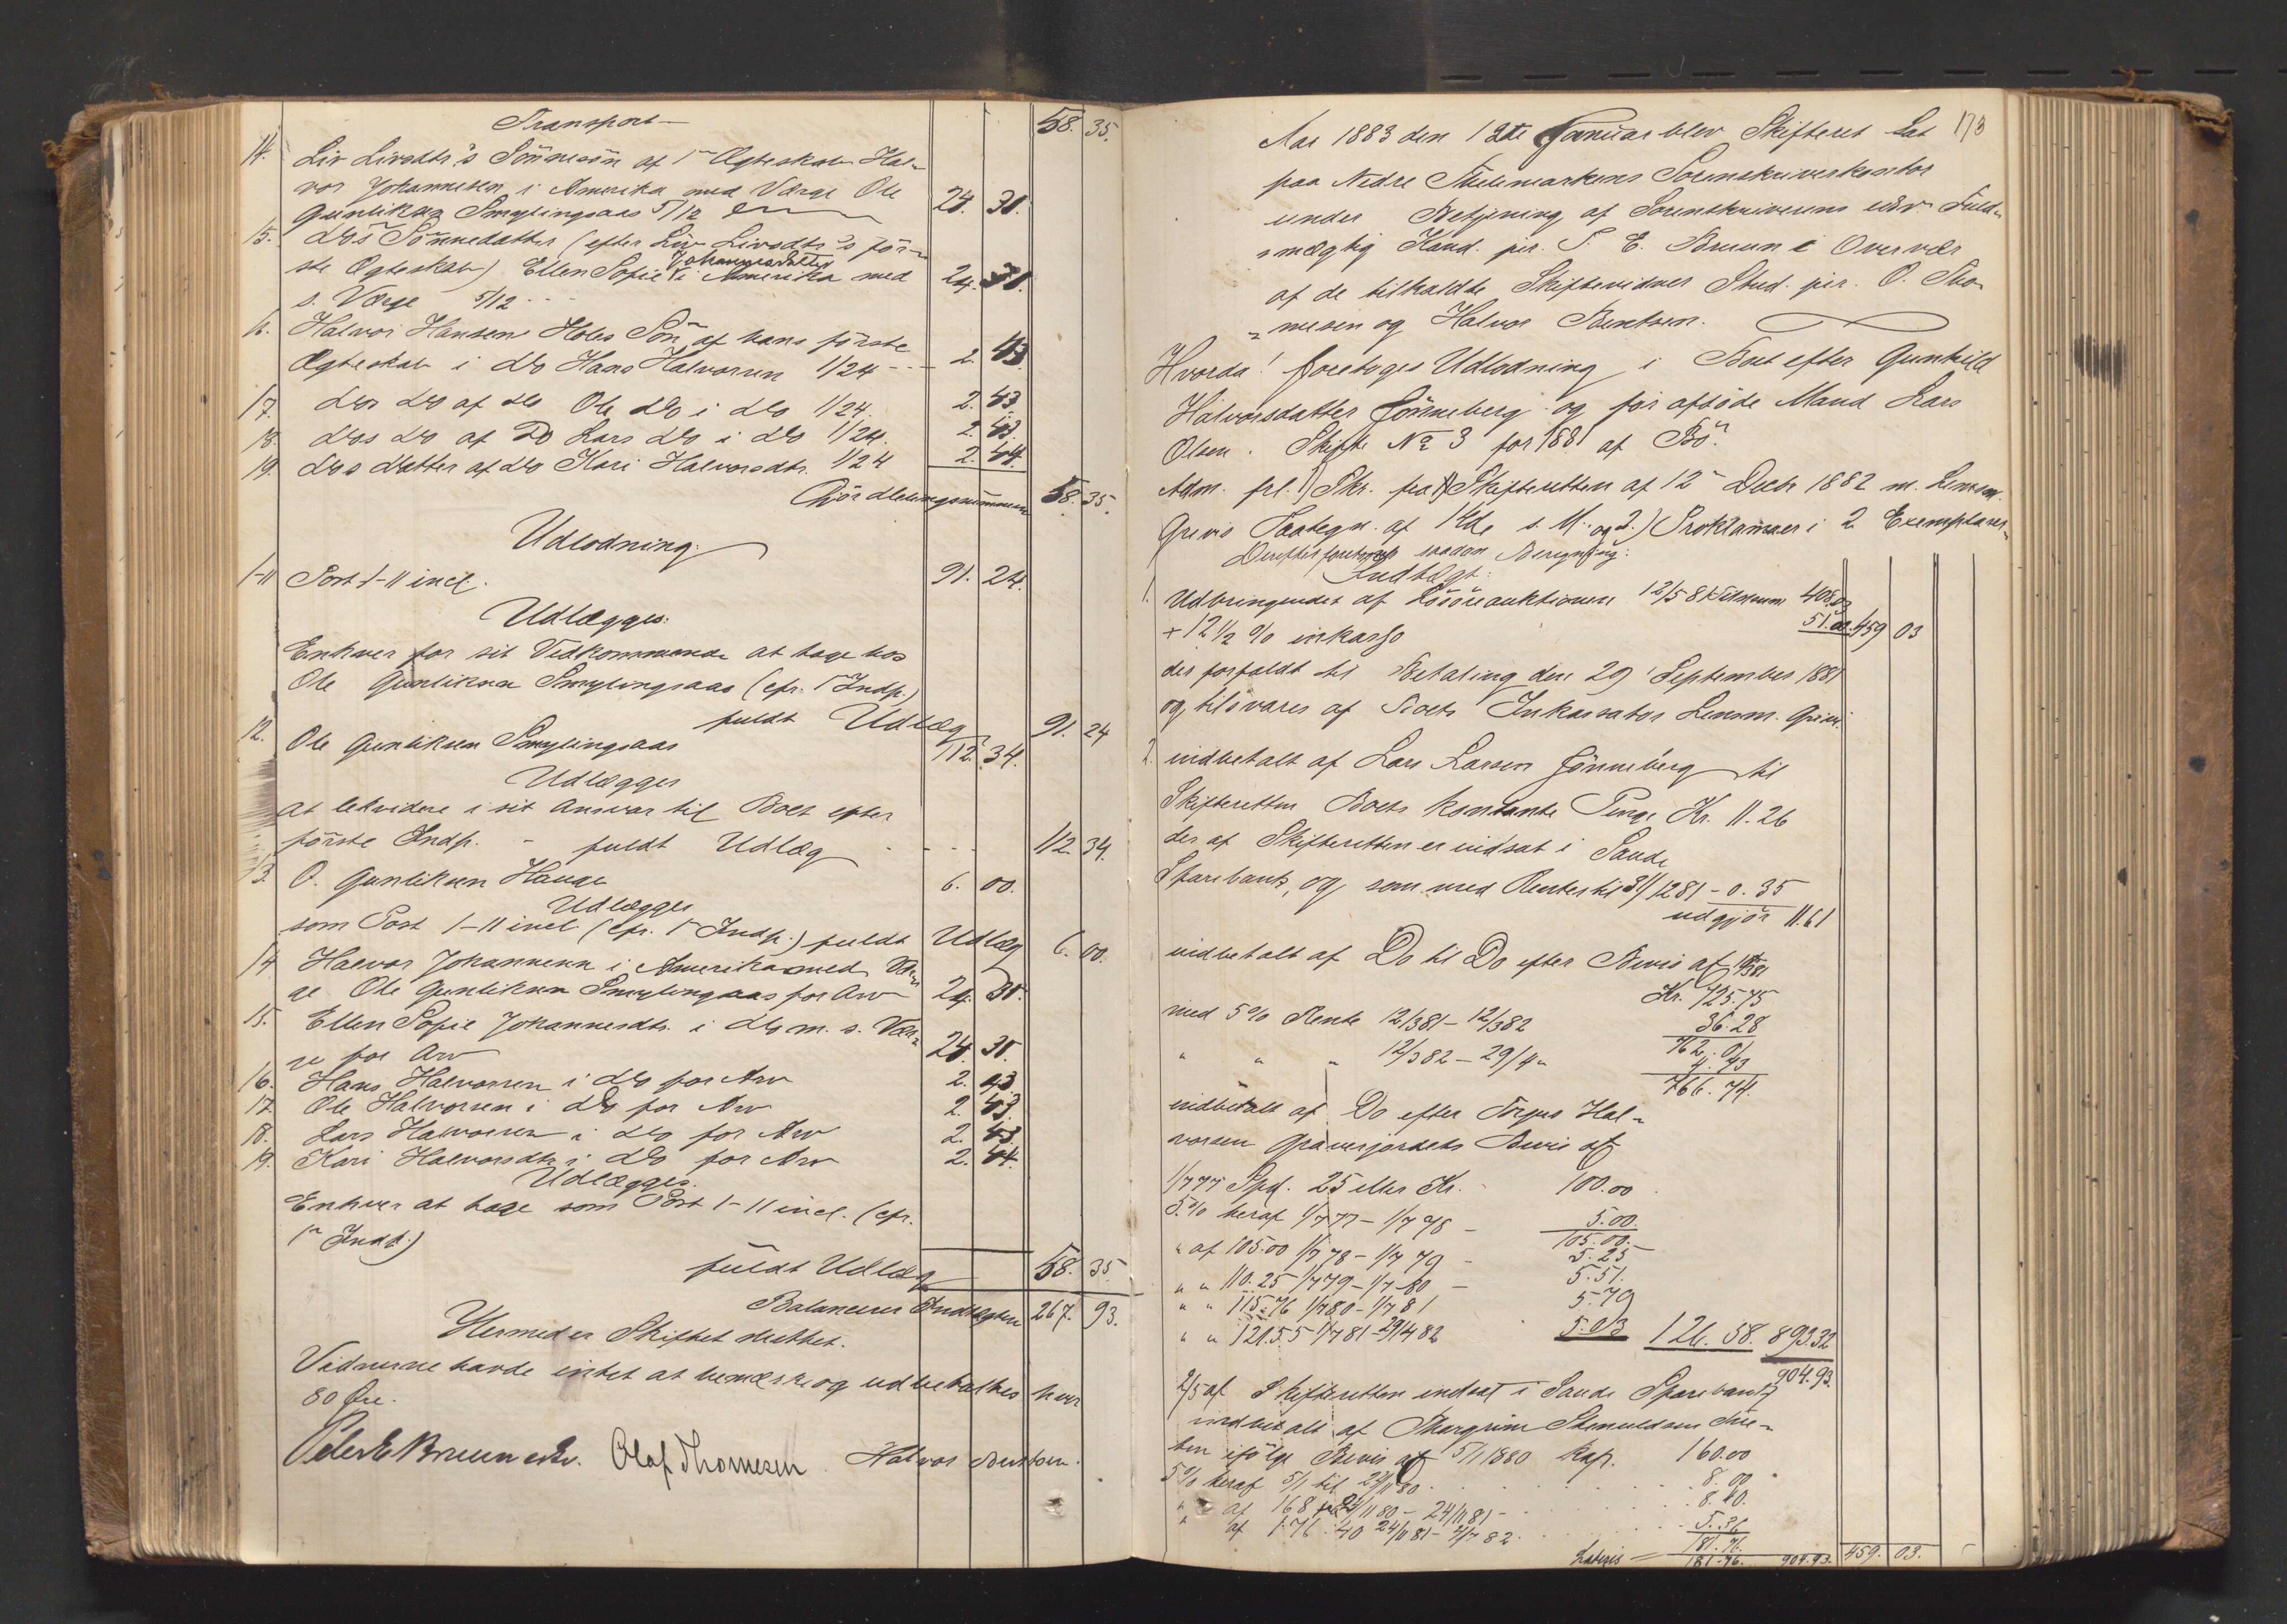 Transport 58. 35.
14. Liv Livsdtr's Sönnesön af 1ste Ægteskab Hal-
vor Johannesen i Amerika med Værge Ole
Gunliksen Smylingsaas 5/12 24. 30.
15. Do's Sönnedatter (efter Liv Livsdtr's för-
ste Ægteskab) Ellen Sofie Johannesdatter i Amerika med
s. Værge 5/12 24. 30.
16. Halvor Hansen Holes Sön af hans förste
Ægteskab i Do Hans Halvorsen 1/24 2. 43.
17. Dos Do af Do Ole Do i Do 1/24. 2. 43.
18. Dos Do af Do Lars Do i Do 1/24. 2. 43.
19. Dos Datter af Do Kari Halvorsdtr. 1/24 2. 44.
Gjör 58. 35.
Udlodning.
1-11 Post 1-11 incl. 91. 24.
Udlægges:
Enhver for sit Vedkommende at tage hos
Ole Gunliksen Smylingsaas (cfr. 1ste Indp.)
fuldt Udlæg 91. 24
12. Ole Gunliksen Smylingsaas 112. 34.
Udlægges
at likvidere i sit Ansvar til Boet efter
förste Indp. - fuldt Udlæg 112. 34.
13. O. Gunliksen Hauge 6. 00.
Udlægges
som Post 1-11 incl (cfr. 1ste Indp.) fuldt Udlæg 6. 00.
14 Halvor Johannesen i Amerika med Vær-
ge Ole Gunliksen Smylingsaas for Arv 24. 30.
15. Ellen Sofie Johannesdtr. i Do m. s. Vær-
ge for Arv 24. 30.
16. Hans Halvorsen i Do for Arv 2. 43.
17. Ole Halvorsen i Do for Arv 2. 43.
18. Lars Halvorsen i Do for Arv 2. 43.
19. Kari Halvorsdtr i Do for Arv 2. 44.
Udlægges.
Enhver at tage som Post 1-11 incl. (cfr.
1ste Indp.)
fuldt Udlæg 58. 35
Balancerer Indtægten 267. 93.
Hermed er Skiftet sluttet.
Vidnerne havde intet at bemærke og udbetaltes hver
80 Øre.
Peter E Bruun edv. Olaf Thomesen Halvor Bentsen.
173
Aar 1883 den 12te Januar blev Skifteret sat
paa Nedre Thelemarkens Sorenskriverkontor
under Betjening af Sorenskriverens edsv. Fuld-
mægtig Kand. jur. P. E. Bruun i Overvær
af de tilkaldte Skiftevidner Stud. jur. O. Tho-
mesen og Halvor Bentsen.
Hvorda! foretoges Udlodning i Boet efter Gunhild
Halvorsdatter Jönneberg og för afdöde Mand Lars
Olsen. Skifte No 3 for 1881 af Bö.
Adm. frl. 1) Skr. fra Skifteretten af 12te Decbr 1882 m. Lensm.
Grivis Paategn. af 14de s. M. og 2.) Proklamaer i 2 Exemplarer.
Derefter foretoges saadan Beregning:
Indtægt:
1. Udbringendet af Lösöreauktionen 12/5 81 408.03
+ 12 1/2 % inkasso 51.00 459 03
der forfaldt til Betaling den 29 September 1881
og tilsvares af Boets Inkassator Lensm. Grivi.
2. indbetalt af Lars Larsen Jönneberg til
Skifteretten Boets kontante Penge Kr. 11.26
der af Skifteretten er indsat i Saude
Sparebank, og som med Renter til 31/12 81 - 0.35
udgjör 11.61
indbetalt af Do til Do efter Bevis af 12/3 81
Kr. 725.75
med 5% Rente 12/3 81 - 12/3 82 36.28
762.03
" " " 12/3 82 - 29/4 " 4.93
766.74.
indbetalt af Do efter Hal-
vorsen Graverjordets Bevis af
1/7 77 Spd. 25 eller Kr. 100.00
5% heraf 1/7 77 - 1/7 78 - 5.00.
105.00.
" af 105.00 1/7 78 - 1/7 79 - 5.25
" " 110.25 1/7 79 - 1/7 80 - 5.51.
" " 115.76 1/7 80 - 1/7 81 5.79
" " 121.55 1/7 81 - 29/4 82 5.03 126.58. 893.32
904.93.
2/5 af Skifteretten indsat i Saude Sparebank
indbetalt af Thorgrim
ifölge Bevis af 5/1 1880 Kap. 160.00
5% heraf 5/1 til 24/11 80 8.00
" af 168 24/11 80 - 24/11 81 - 8.40.
" af 176.40 24/11 81 - 2/7 82. 5.36
181.76.
Lateris 181.76. 904.93. 459. 03.